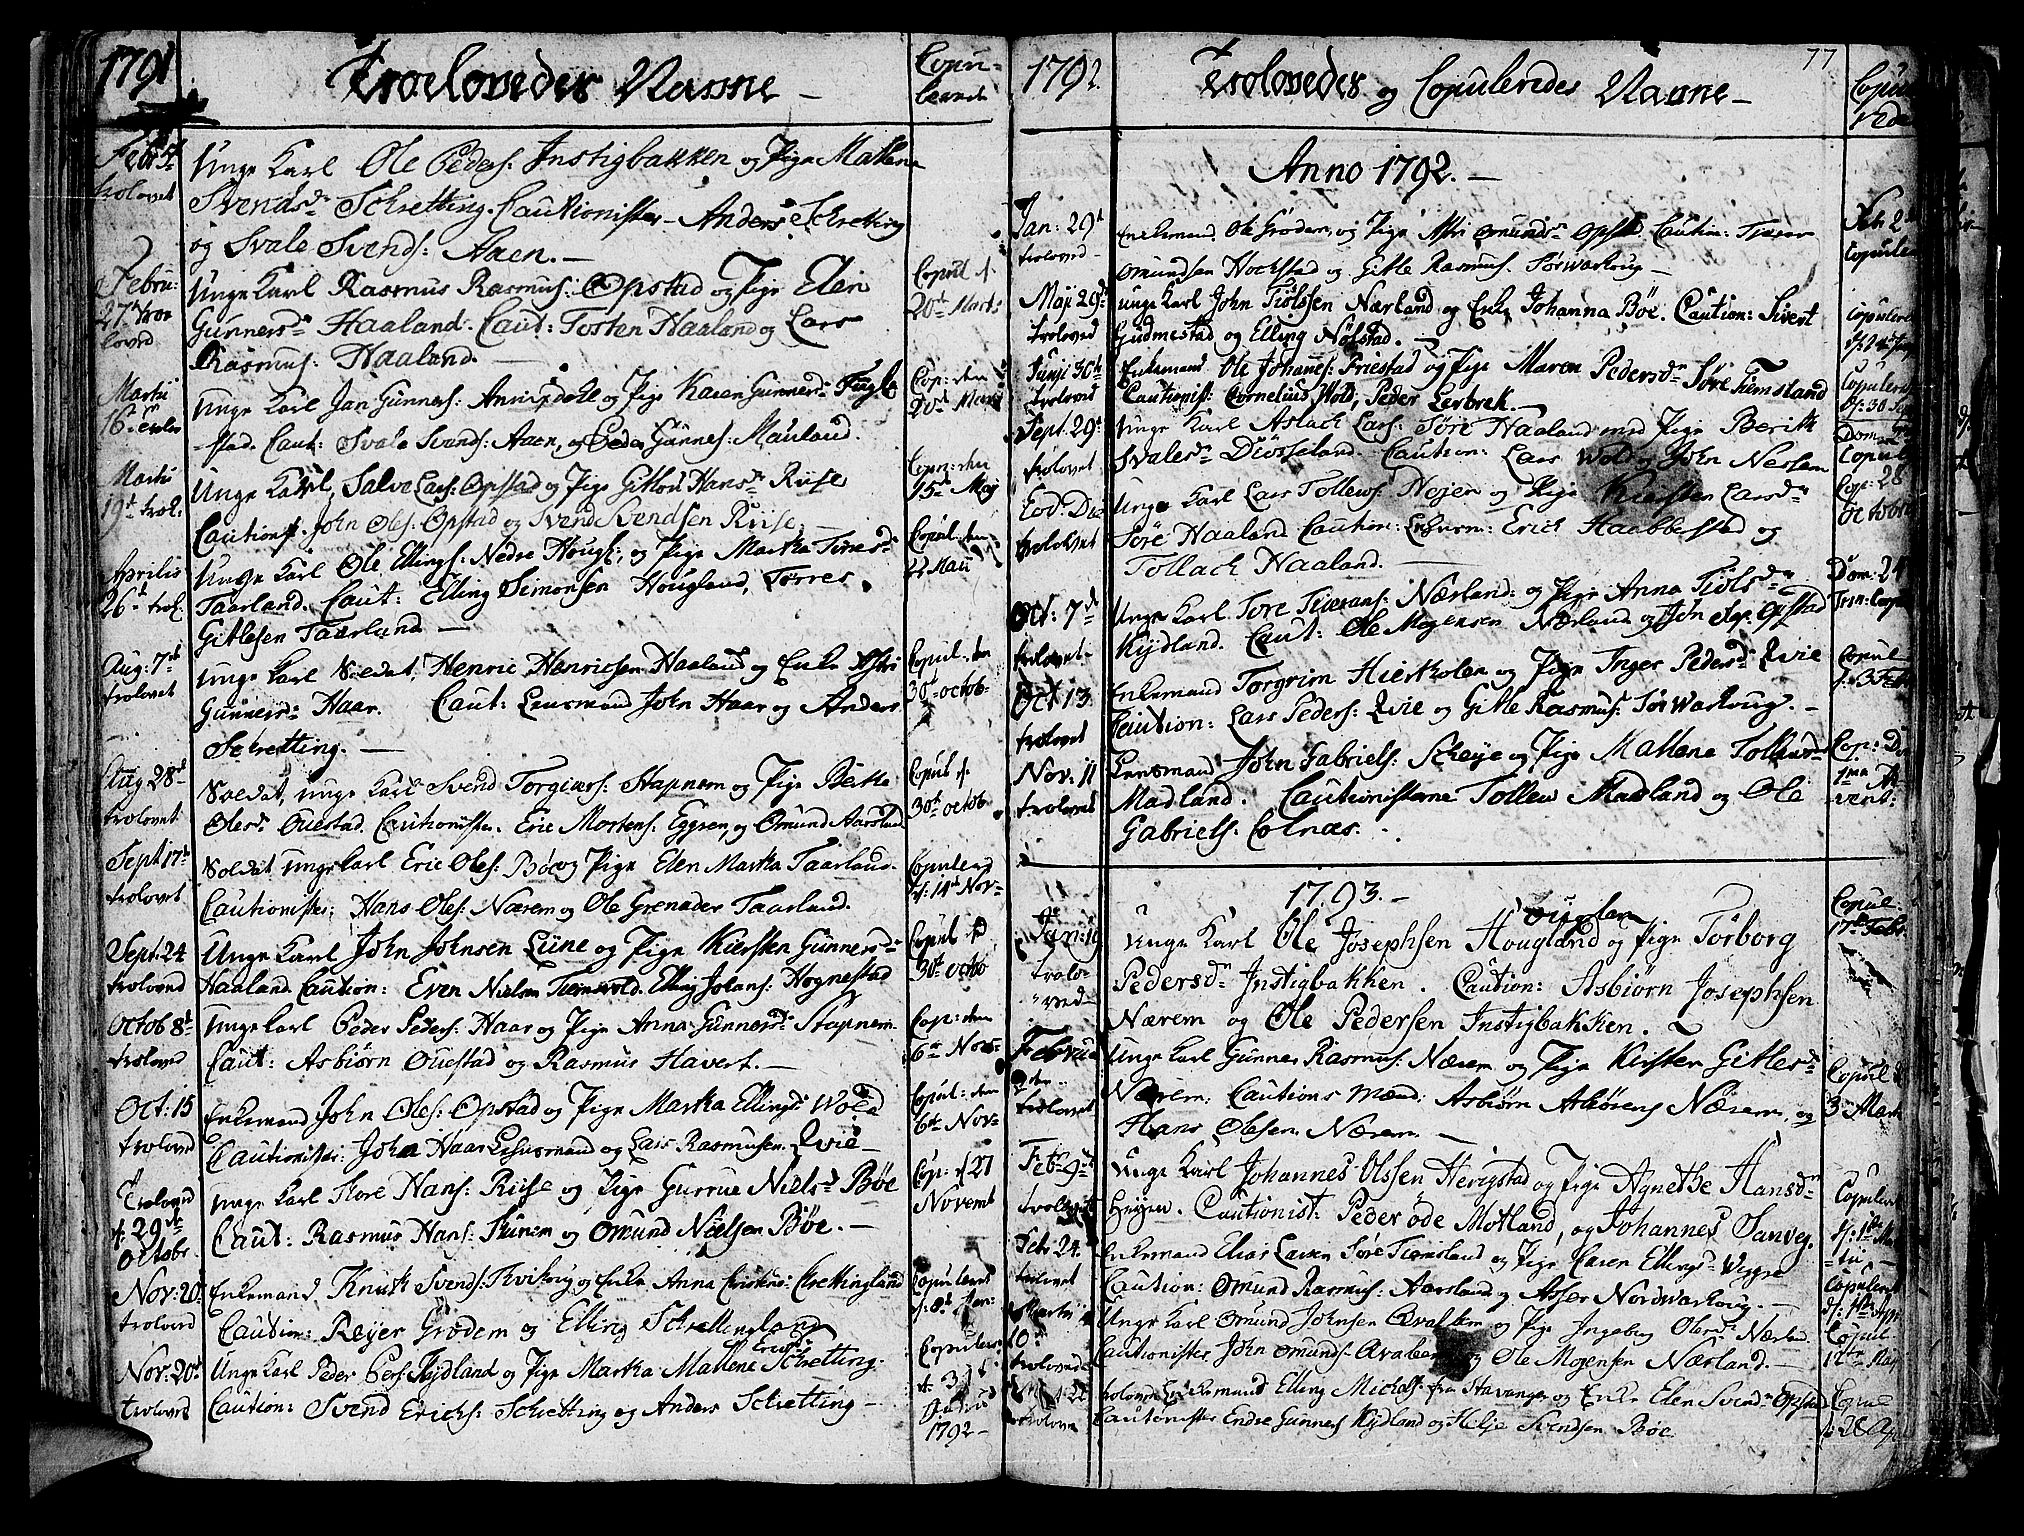 1791
Troeloveder Navne –
Copu-
lerede
Febr 5t
trolovet
Unge Karl Ole Peders: Instigbakken og Pige Mallene
Svendsdr Schretting. Cautionister – Anders Schretting
og Svale Svends: Aaen. –
Febru:
27 troe
loved
Unge Karl Rasmus Rasmus: Opstad og Pige Elen
Gunnersdr Haaland. Caut: Tosten Haaland og Lars
Rasmus: Haaland. –
Copul d.
20de Marts
Martii
16
Unge Karl Jan Gunners: Anisdahl og Pige Karen Gunnersdr Fugle
-stad. Caut: Svale Svends: Aaen, og Peder Gunners: Mauland.
Cop: den
20de
Martii
19t trol:
Unge Karl, Salve Lars: Opstad og Pige Gitlou Hansdr Riise
Cautionist: John Oles: Opstad og Svend Svendsen Riise. –
Copu: den
15de Maj
Aprilis
26t trol:
Unge Karl Ole Ellings: Nedre Hougl:, og Pige Marta Torresdr
Taarland. Caut: Elling Simonsen Hougland, Torres
Gitlesen Taarland –
Copul: den
22 Maii
Aug: 7de
trolovet
Unge Karl Soldat, Henric Henricsen Haaland og Enke Astri
Gunnersdr Haar. Caut: Lensmand John Haar og Anders
Schretting. –
Copul: den
30t octob-
Aug 28de
trolovet
Soldat, unge Karl Svend Torgiers: Stapnem og Pige Berte
Olesdr Ouestad. Cautionister. Eric Mortens: Eggren, og Omund Aarsland
Copul d.
30t octob
Sept 17de
trolovet
Soldat unge Karl Eric Oles: Bøe og Pige Elen Marta Taarland-
Cautionister; Hans Oles: Nærem og Ole Grenader Taarland.
Copulerd
d: 14de Nov-
Sept: 24
trolovd
Unge Karl John Johnsen Liine og Pige Kiersten Gunnersdr
Haaland. Caution: Even Nielsen Tiemsvold. Elling Johans: Hognestad
Copul d
30t octo
Octob 8t
trolovd
Unge Karl Peder Peders: Haar og Pige Anna Gunnersdr Stapnem-
Caut: Asbiørn Ouestad og Rasmus Havert. –
Cop: den
6te Nov-
Oct: 15
trolovd
Enkemand John Oles: Opstad og Pige Marta Ellingsdr Wold
Cautionister: John Haar Lensmand og Lars Rasmusen Qvie –
Copul: den
6te Nov-
Trolovd
d: 29de
Octobr.
Unge Karl Tore Hans: Riise og Pige Gurrue Nielsdr Bøe
Caut: Rasmus Hans: Tunem og Omund Nielsen Bøe. –
Cop: d 27
Novemt
Nov: 20
trolovd
Enkemand Knut Svends: Tviterug og Enke Anna Schrettingland
Caution: Reyer Grødem og Elling Schrettingland
Copuleret
d: 8de Jan:
Nov: 20t
trolovet
Unge Karl Peder Pers: Kydland og Pige Marta Mallene Ericsdr Schretting.
Caution: Svend Ericks: Schretting og Anders Schretting –
Copuler:
d: 3
1792 –
1792.
Trolovedes og Copuleredes Navne –
77
Copul
rede
Anno 1792. –
Jan: 29t
trolovd –
Enkemand Ole Grødem, og Pige Astri Omundsdr Opstad. Caution: Tiæran
Omundsen Hochstad og Gitle Rasmus. Sørwarhug –
Copulere
Maji 29de
trolovd
Unge Karl John Tiølssen Nærland og Enke Johanna Bøe. Caution: Sivert
Gudmestad og Elling Nølstad. –
Copulere
Junji 30te
trolovd
Enkemand Ole Johanes: Friestad og Pige Maren Pedersdr Søre Tiemsland
Cautionist: Cornelius Wold, Peder Lerbrek. –
Copulere
d: 30 Sept
Sept. 29t
trolovet
Unge Karl Aslach Lars: Søre Haaland med Pige Berith
Svalesdr Diøsseland. Caution: Lars Wold og John Neslem
Copul
Eod: Die
trolovet
Unge Karl Lars Tollews: Nojen og Pige Kiersten Larsdr
Søre Haaland Caution: Lensm: Erich Haabbestad og
Tollach Haaland. –
Cop: 28
octobr
Oct: 7de
trolovet
Unge Karl Tore Tiærans: Nærland: og Pige Anna Tiølsdr
Kydland. Caut: Ole Mogensen Nærland og John Opstad
Dom: 24
Trin: Copul
Oct 13
trolovet
Enkemand Torgrim Hierkolen og Pige Inger Pedersdr Qvie
Caution: Lars Peders: Qvie og Gitle Rasmus: Sør Warhoug. –
Copul
d: 3 Feb
Nov: 11
trolovet
Lensmand John Gabriels: Scheije og Pige Mallena
Madland. Cautionisterne Tollew Madland og Ole
Gabriels: Colnæs. .
Cop: Do
1ma Ad
vent:
1793. –
Jan: 19
trolo
ved
Unge Karl Ole Josephsen Hougland og Pige Torborg
Pedersdr Instigbakken. Caution: Asbiørn Josephsen
Nærem og Ole Pedersen Instigbakken. –
Copul.
17de Febr.
Februa
trolovet
Unge Karl Gunner Rasmus: Nærem og Pige Kirsten Gitlesdr
Nærem: Cautions Mænd: Asbiørn Asbiørens Nærem, og
Hans Olesen Nærem –
Copul
3 Marti
Febr 9de
trolovet
Unge Karl Johannes Olssen Herigstad og Pige Agnethe Hansdr
Cautionist: Peder øde Motland, og Johannes Sanvej.
Copulert
Febr: 24.
trolovet
Enkemand Elias Larsen Søre Tiemsland og Pige Caren Ellingsdr Wiggre
Caution: Omund Rasmus: Aarsland og Asser Nordwarhoug. –
Copulert
Martii
10
trolovet
Unge Karl Omund Johnsen Qvalbem og Pige Ingeborg Olesdr Nærland
Cautionister John Omunds- og Ole Mogensen Nærland. –
Copul
12te Maj
trolovet
trolovd Enkemand Elling Michels: fra Stavanger og Enke Elen Svendsdr Opstad
Cautionister Endre Gunners Kydland og Helje Svendsen Bøe
Copul